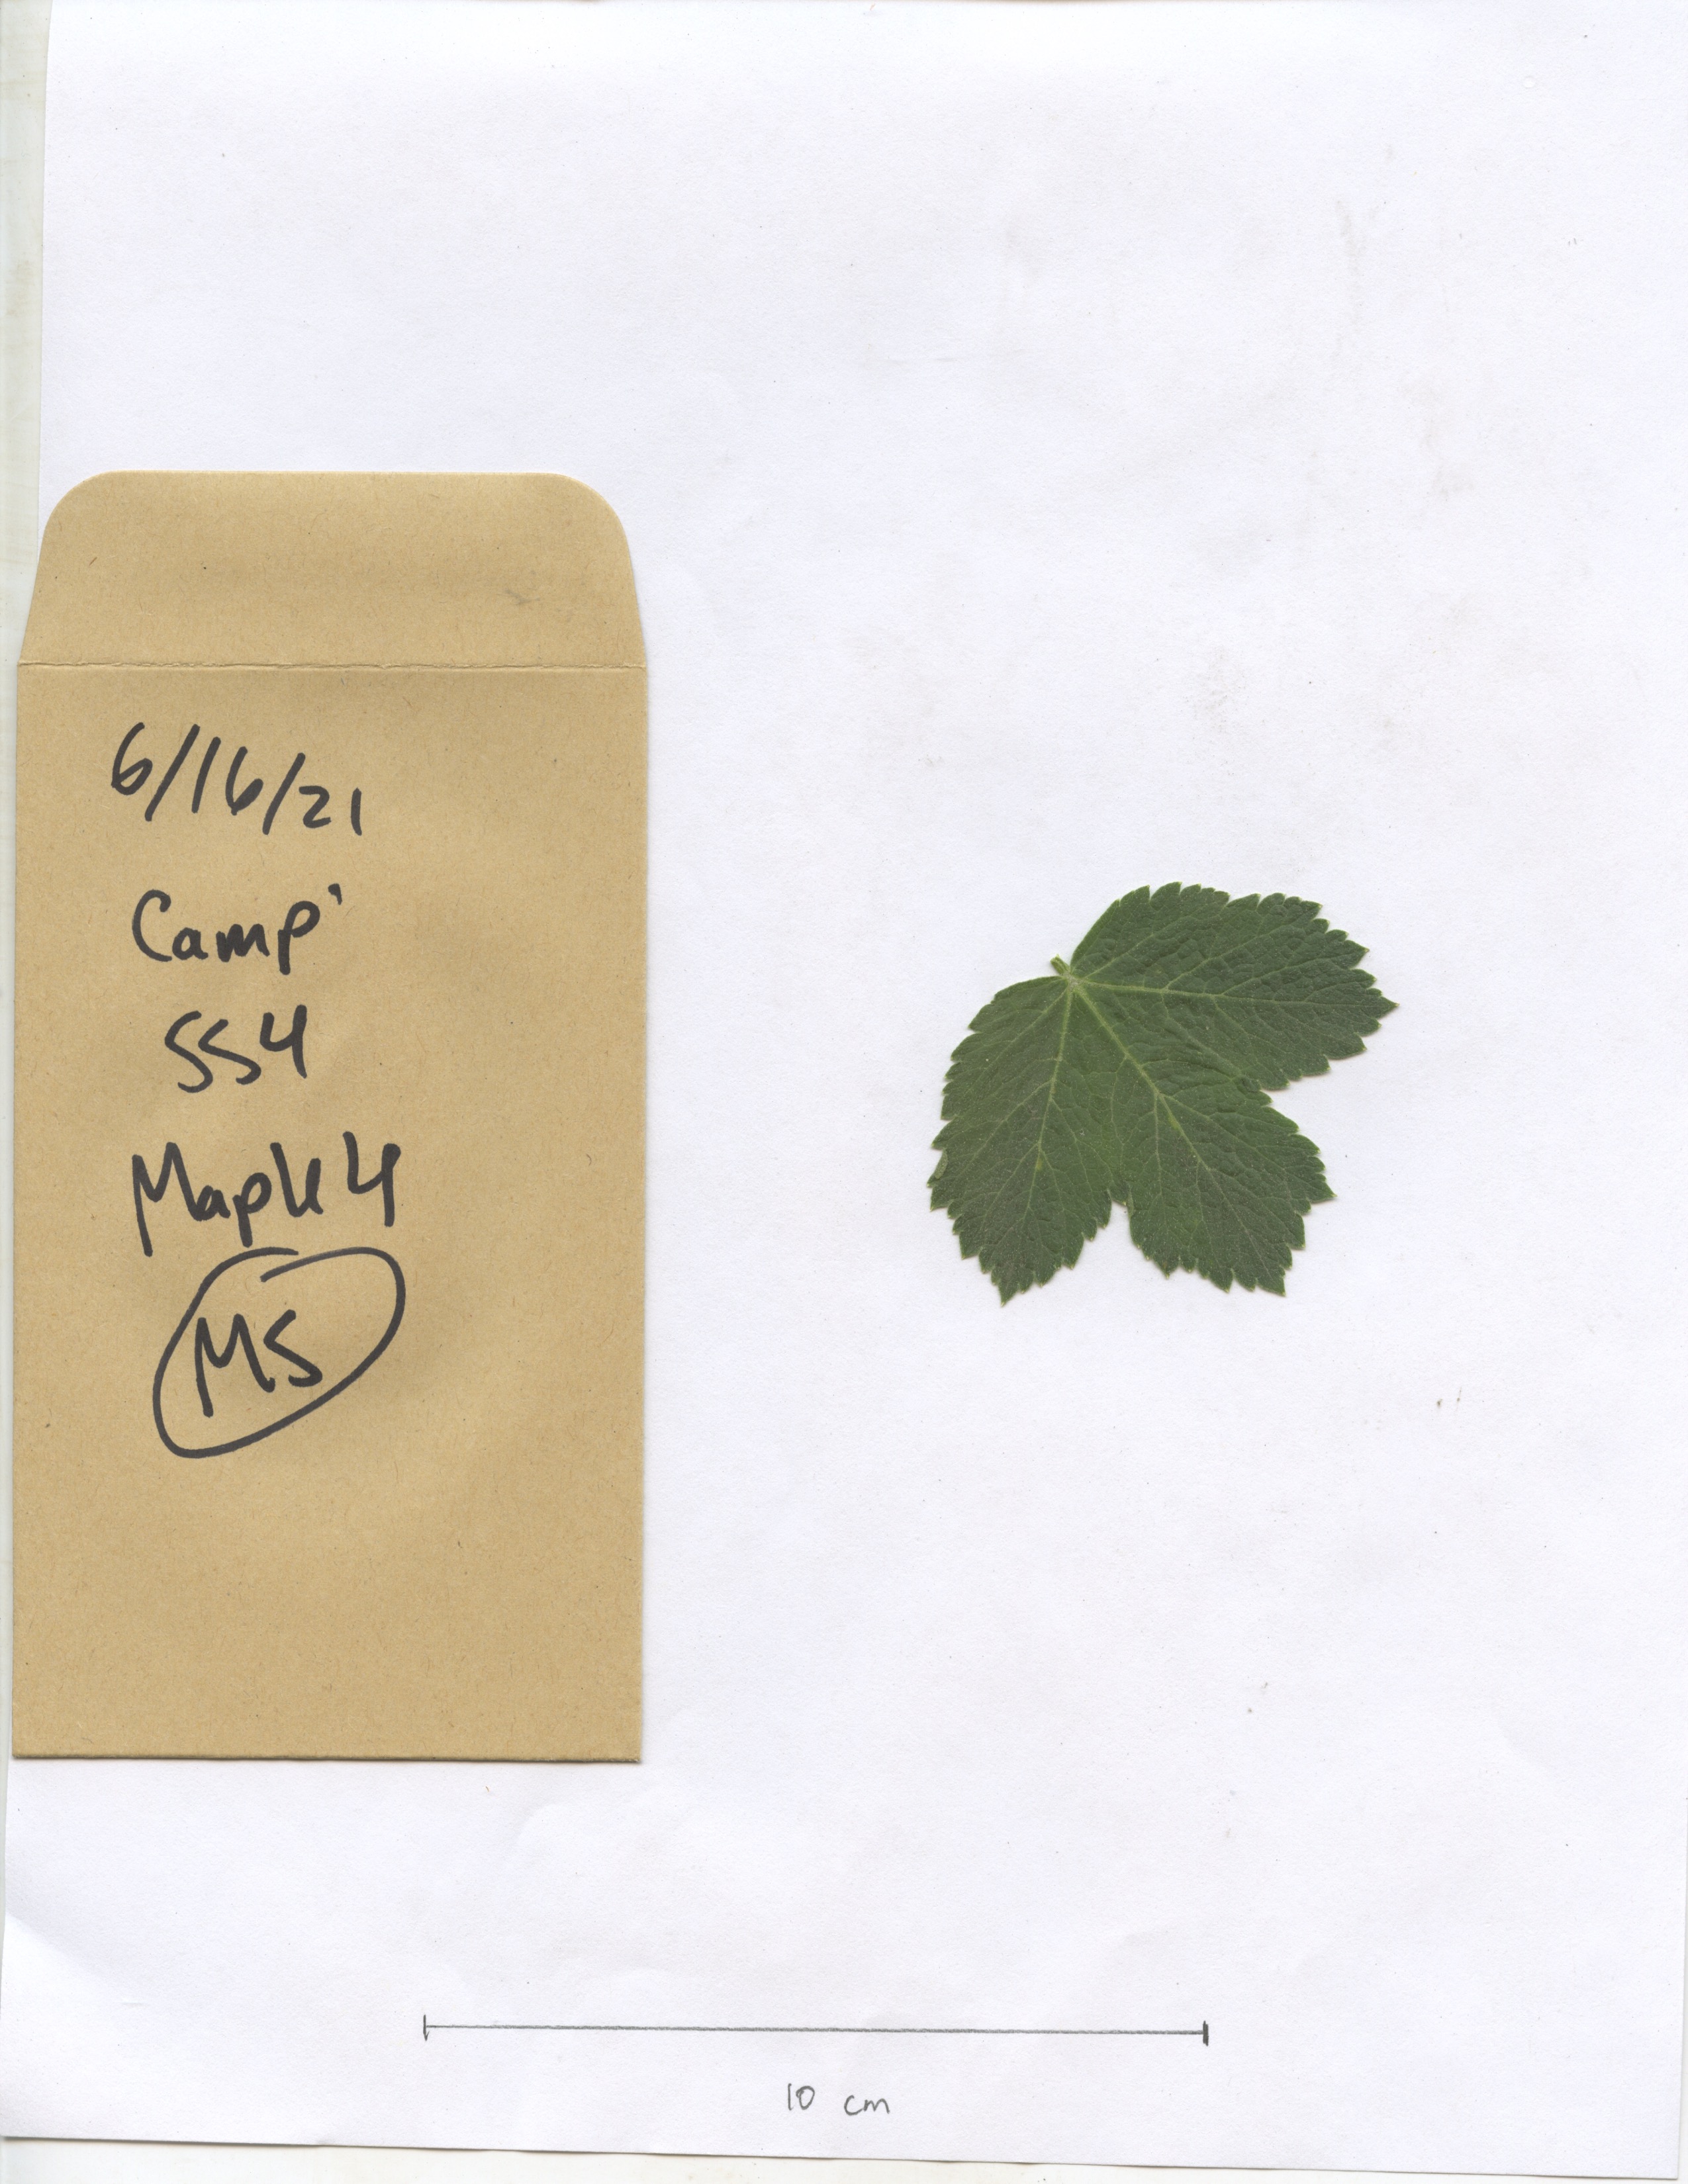 6/16/21
Camp'
SS4
Maple 4
MS
10 cm